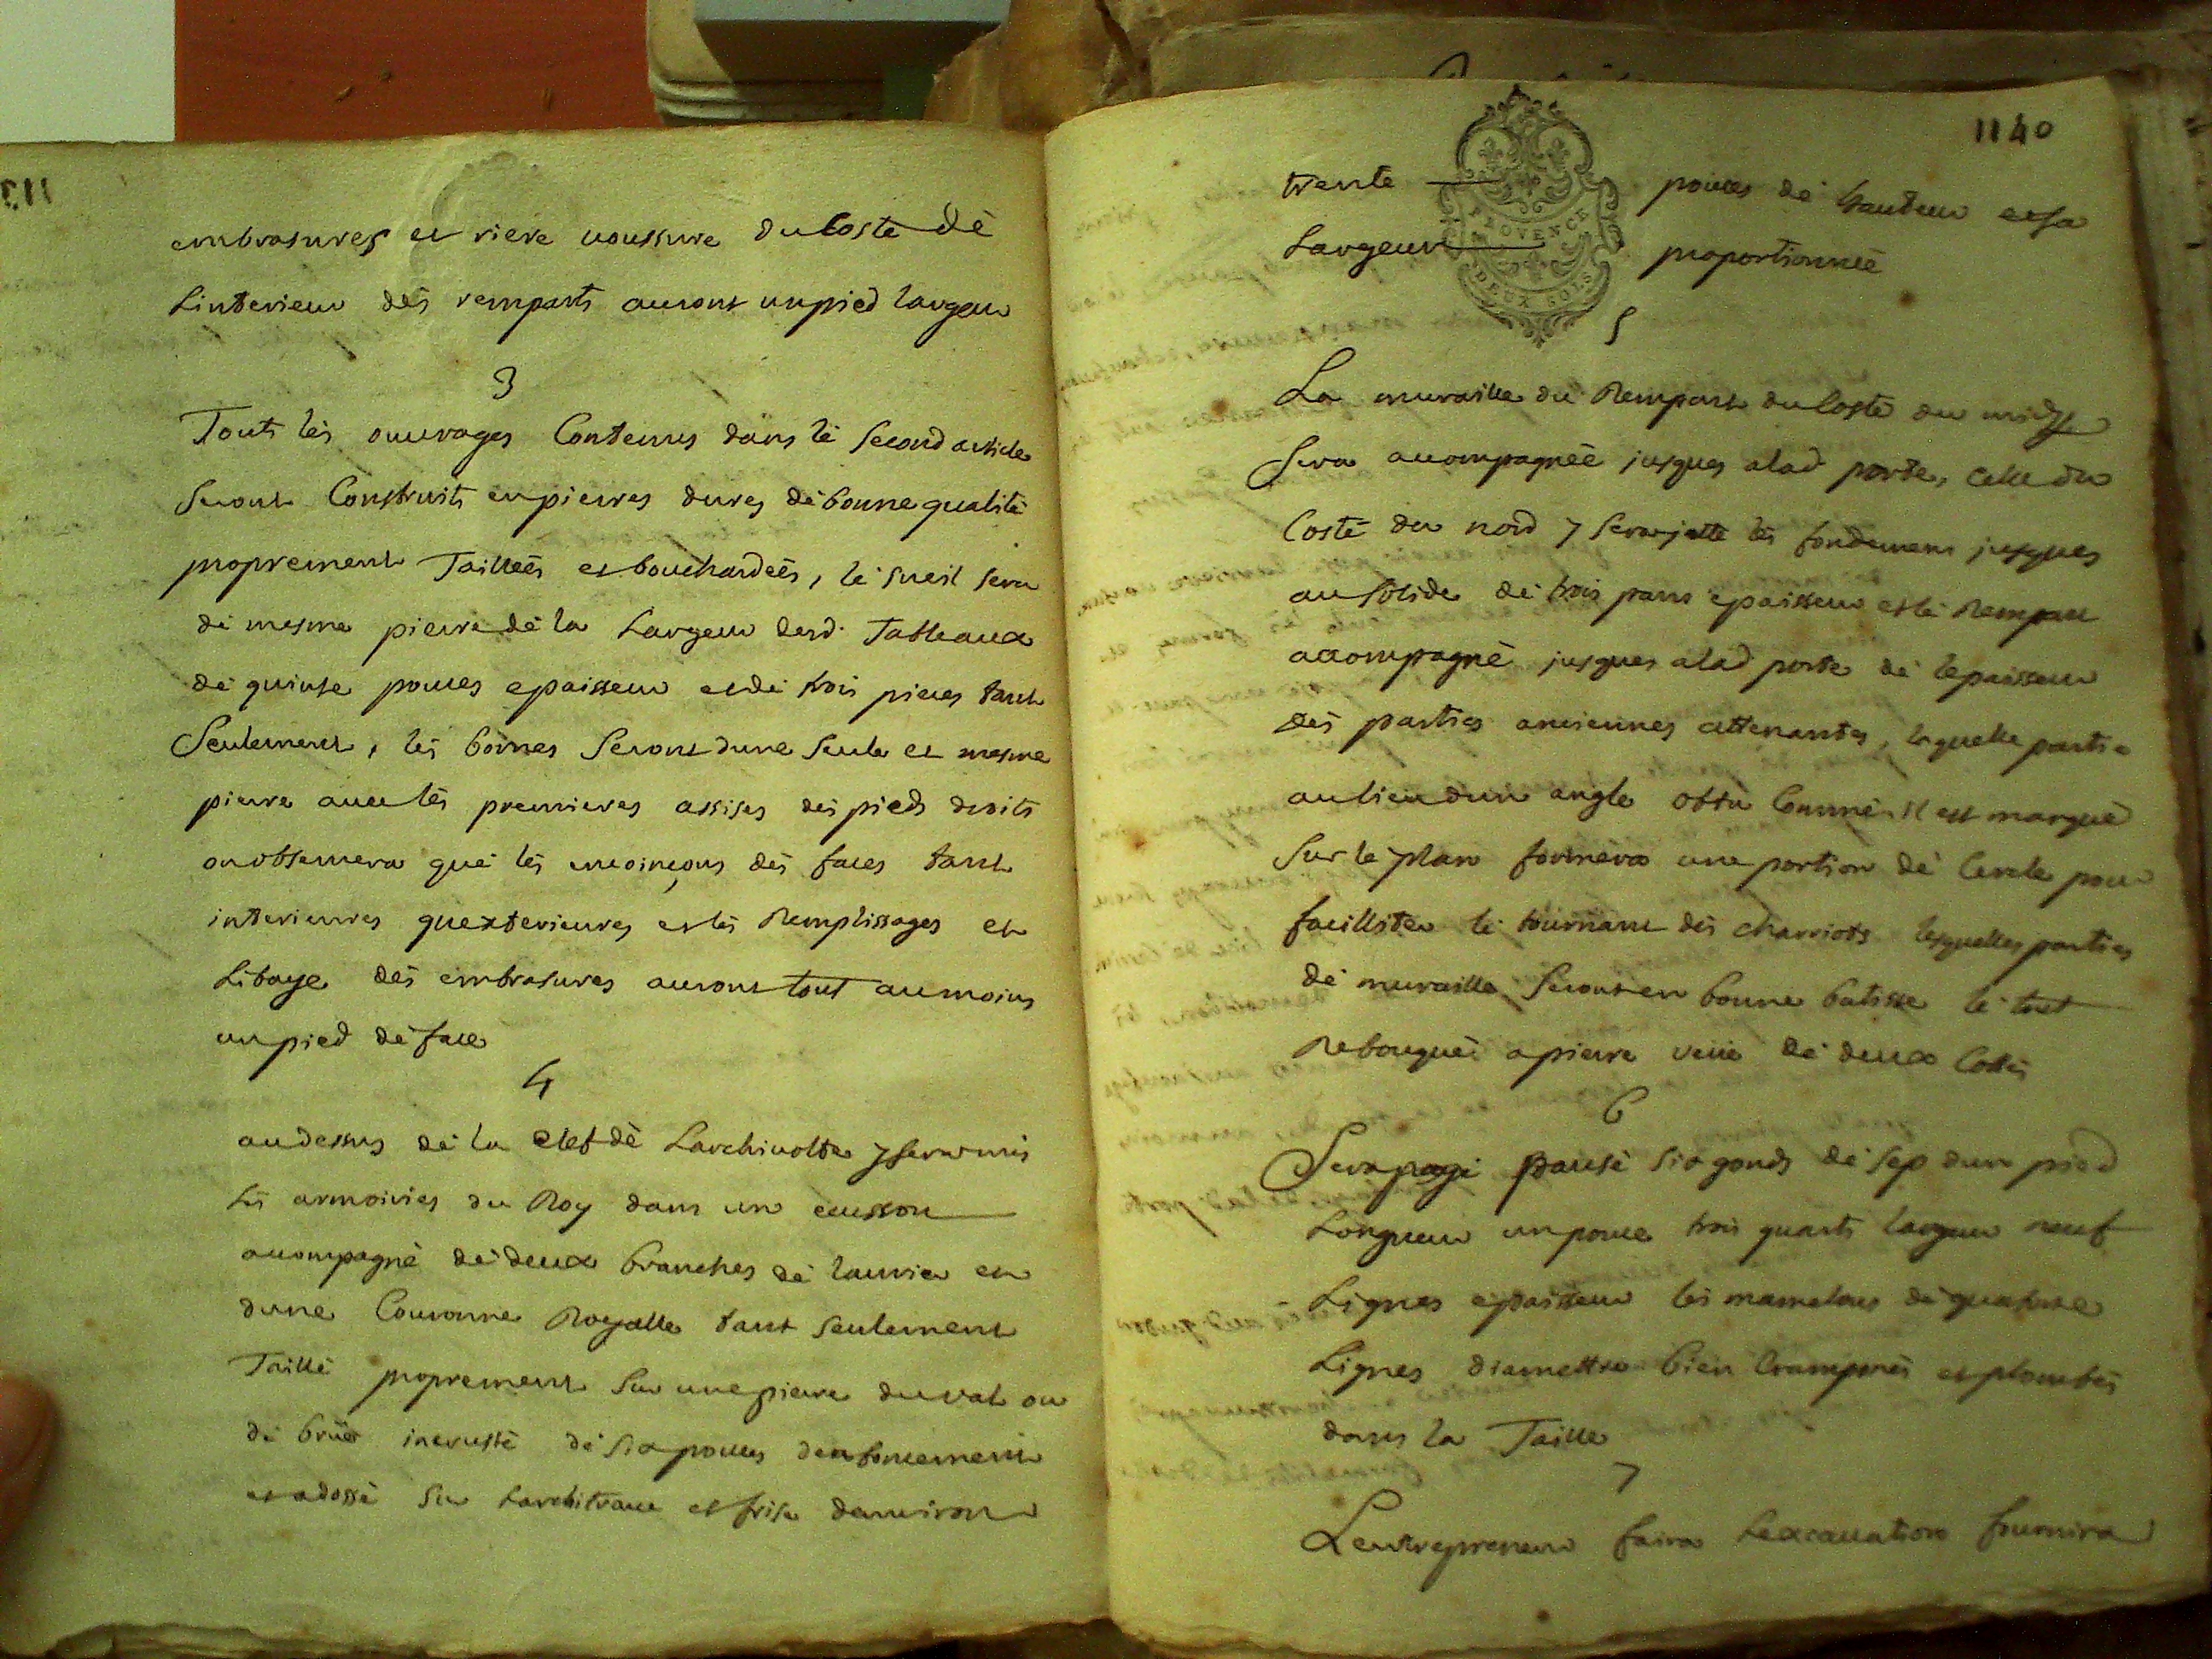 embrasures et riere voussure du Costé dè
Linterieur dès remparts auront un pied largeur
3
Touts lès ouvrages Contenus dans lè second article
seront Construits en pierres dures dè bonne qualité
proprement Tailléés et bouchardéés, lè sueil sera
dè mesme pierre dè la Largeur desd. Tableaux
dè quinse pouces epaisseur et dè trois pieces tant
Seulement, lès bornes seront dune seule et mesme
pierre avec lès premieres assises dès pieds droits
on observera què lès encoinçons dès faces tant
interieures quexterieures et lès Remplissages et
Libage dès embrasures auront tout au moins
un pied dè face
4
au dessus dè la clef dè Larchivolte y sera mis
Lès armoiries du Roy dans un ecusson
acompagné dè deux branches dè laurier et
dune Couronne Royalle tant seulement
Taillé proprement sur une pierre du val ou
dè brüe incrusté dè six pouces denfoncement
et adossé sur Larchitrave et frise denviron
1140
trente pouces dè hauteur et sa
Largeur proportionnéé
PROVENCE
DEUX SOLS
5
La muraille du Rempart du Costé du midy
Sera accompagnéé jusques a lad porte, celle du
Costé du nord y sera jetté lès fondemens jusques
au solide dè trois pans epaisseur et lè Rempart
accompagné jusques a lad porte dè lepaisseur
dès parties anciennes attenantes, laquelle partie
au lieu dun angle obtu Comme il est marqué
sur lè plan formera une portion dè Cercle pour
facilliter lè tournant dès charriots lesquelles parties
dè muraille seront en bonne batisse lè tout
Rebouqué a pierre veüe dè deux Costés
6
Sera pausé six gonds dè sep dun pied
Longueur un pouce trois quarts largeur neuf
Lignes epaisseur lès mamelons dè quatorse
Lignes diamettre bien Cramponés et plombés
dans la Taille
7
Lentrepreneur faira Lexcavation fournira